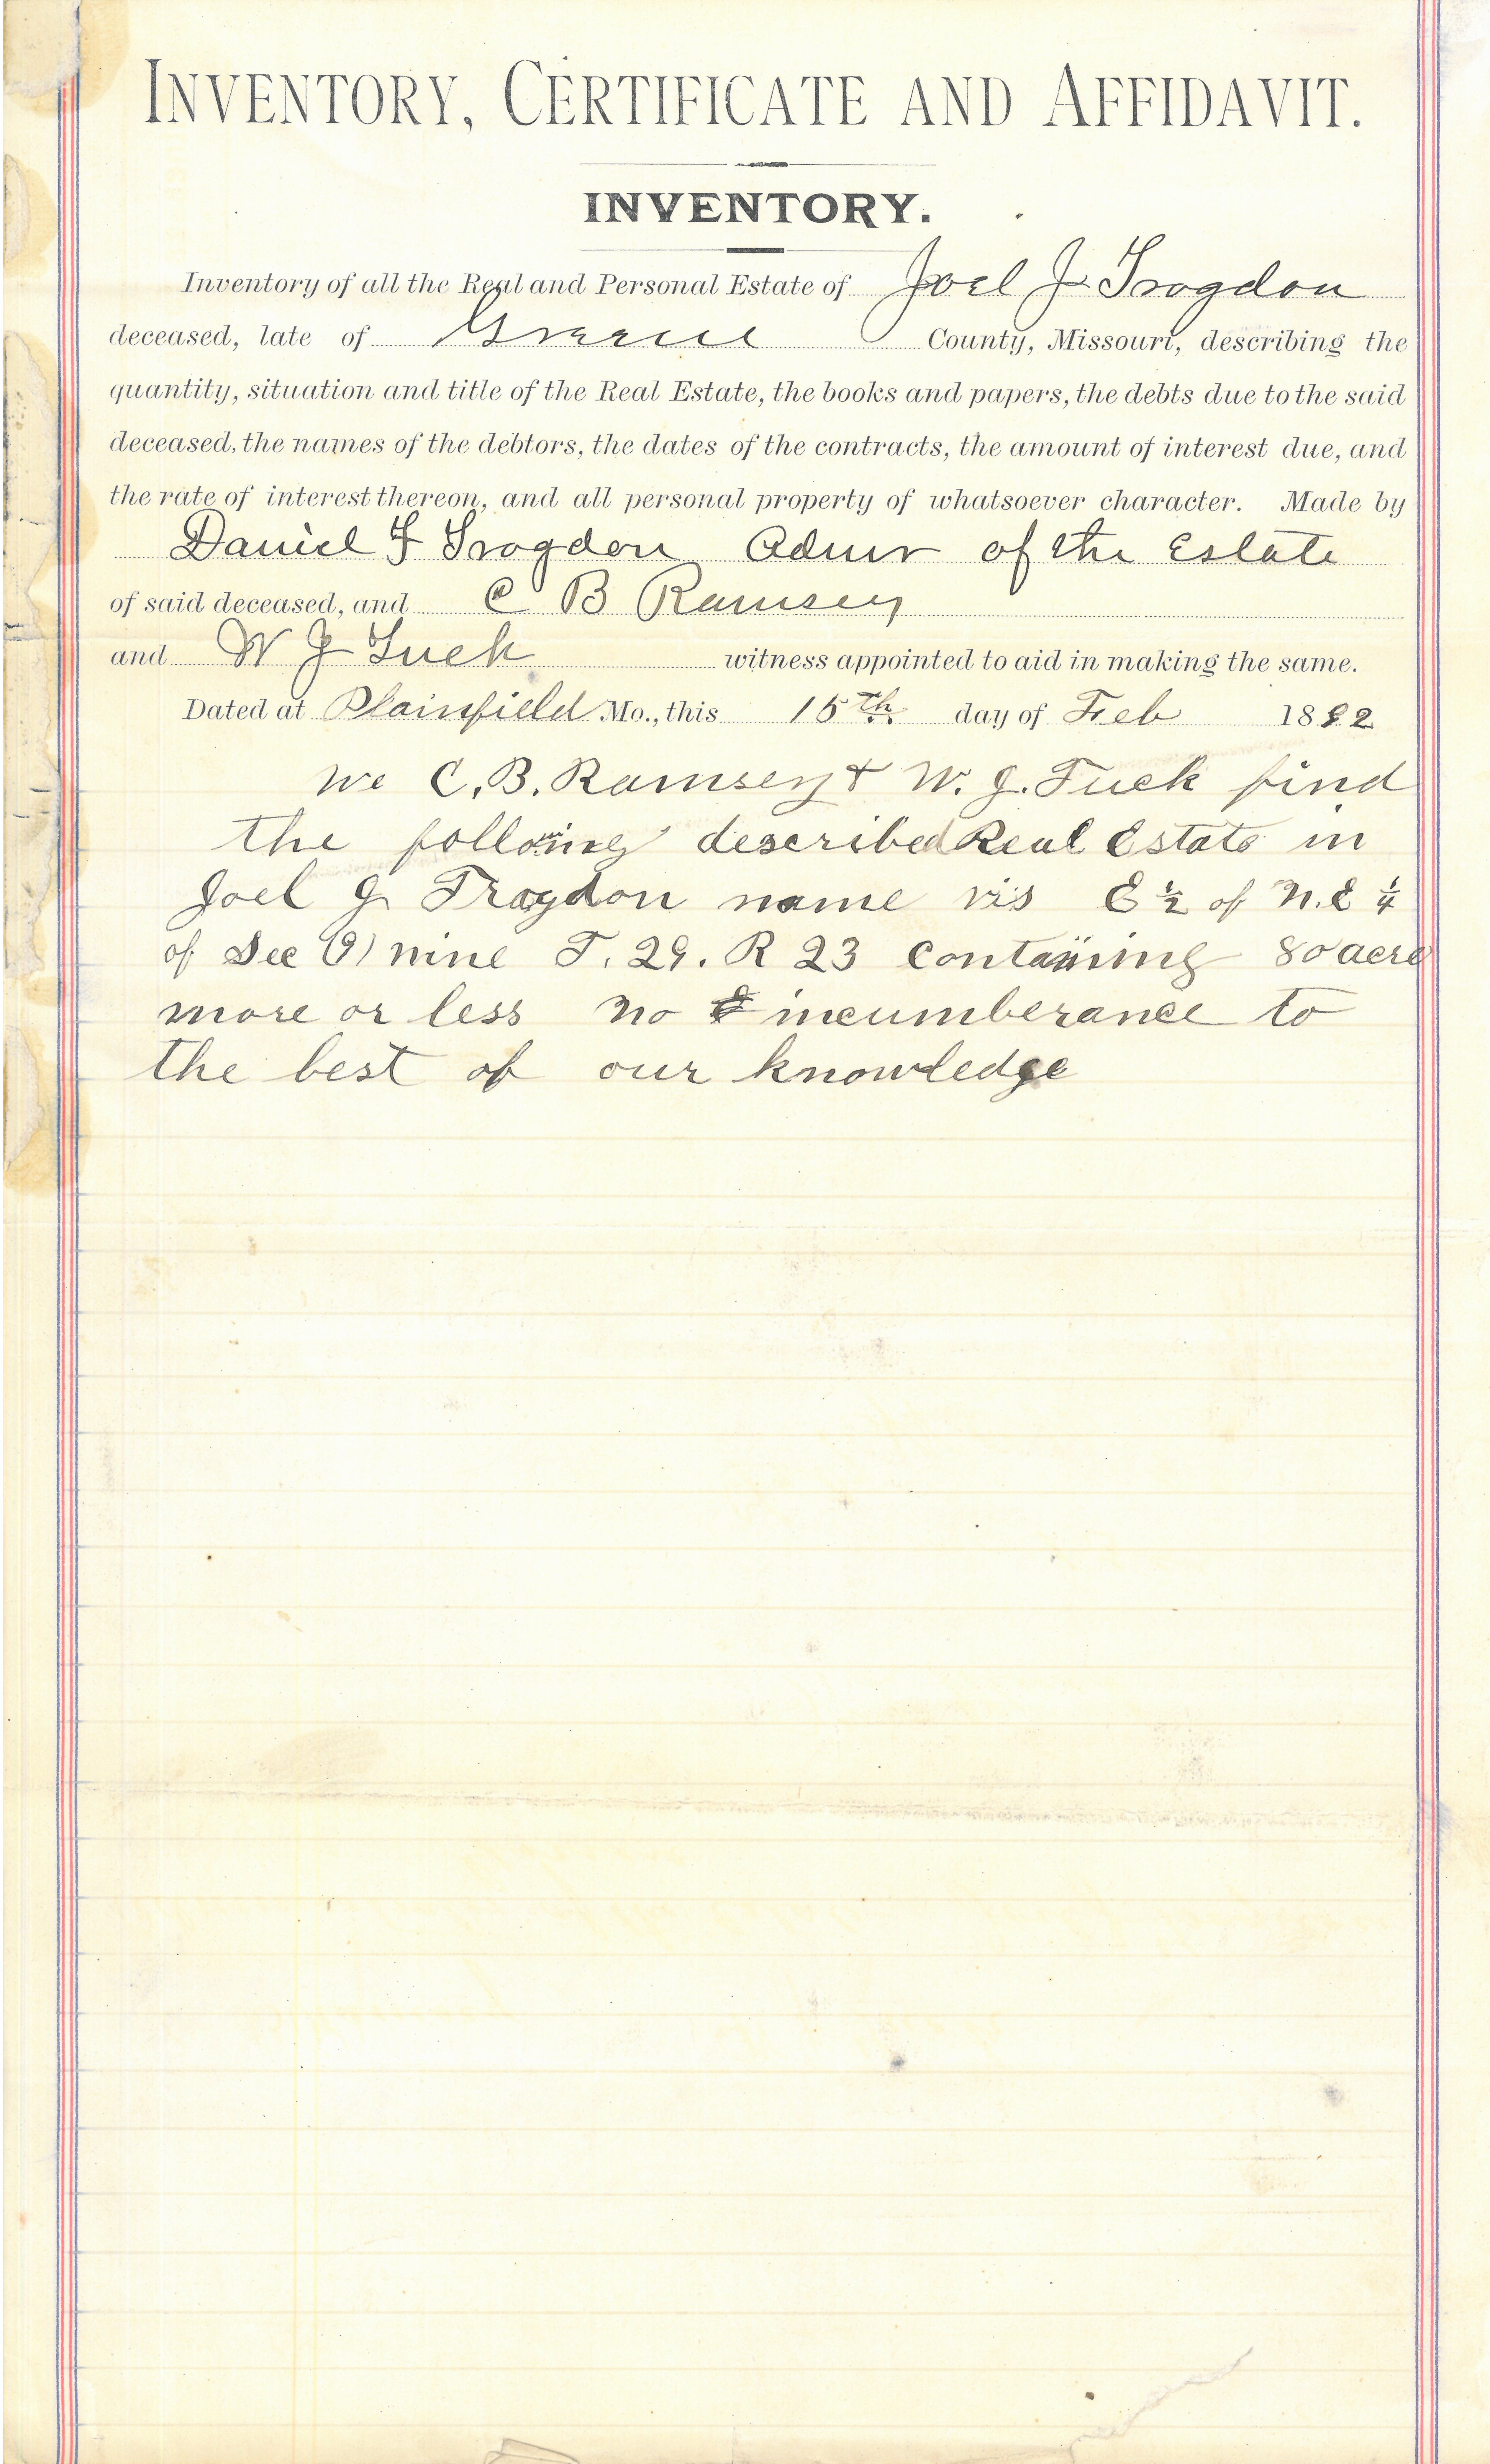 INVENTORY, CERTIFICATE AND AFFIDAVIT.
INVENTORY.
Inventory of all the Real and Personal Estate of Joel J Trogdon
deceased, late of Greene County, Missouri, describing the
quantity, situation and title of the Real Estate, the books and papers, the debts due to the said
deceased, the names of the debtors, the dates of the contracts, the amount of interest due, and
the rate of interest thereon, and all personal property of whatsoever character. Made by
Daniel F Trogdon Admr of the Estate
of said deceased, and C B Ramsey
and W J Tuck witness appointed to aid in making the same.
Dated at Plainfield Mo., this 15th day of Feb 1892
We C. B. Ramsey & W. J. Tuck find
the following described Real Estate in
Joel J Trogdon name vis E ½ of N.E ¼
of Sec (9) nine T. 29. R 23 containing 80 acre
more or less no incumberance to
the best of our knowledge